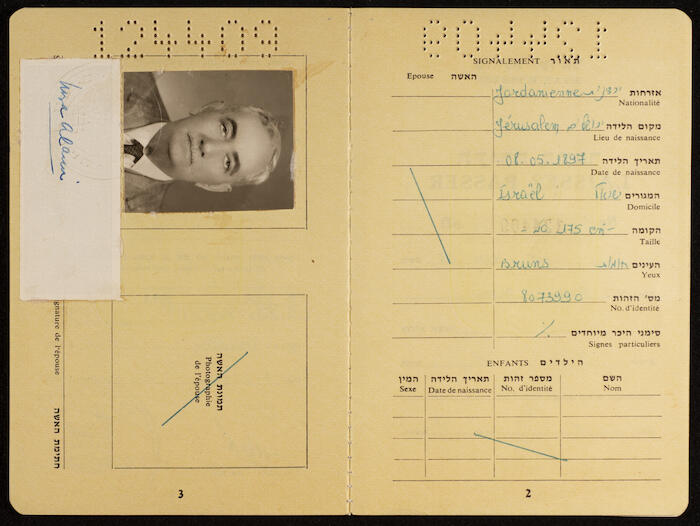 SIGNALEMENT תאור
Epouse האשה
Jordanienne ירדנית אזרחות
Nationalité
Jérusalem ירושלים מקום הלידה
Lieu de naissance
08.05.1897 תאריך הלידה
Date de naissance
Israël ישראל המגורים
Domicile
175 cm הקומה
Taille
Bruns חומות העינים
Yeux
8073990 מס' הזהות
No. d'identité
٪ סימני היכר מיוחדים
Signes particuliers
ENFANTS הילדים
המין תאריך הלידה מספר זהות השם
Sexe Date de naissance No. d'identité Nom
2
124409
תמונת האשה
Photographie
de l'épouse
ignature de l'épouse חתימת האשה
3